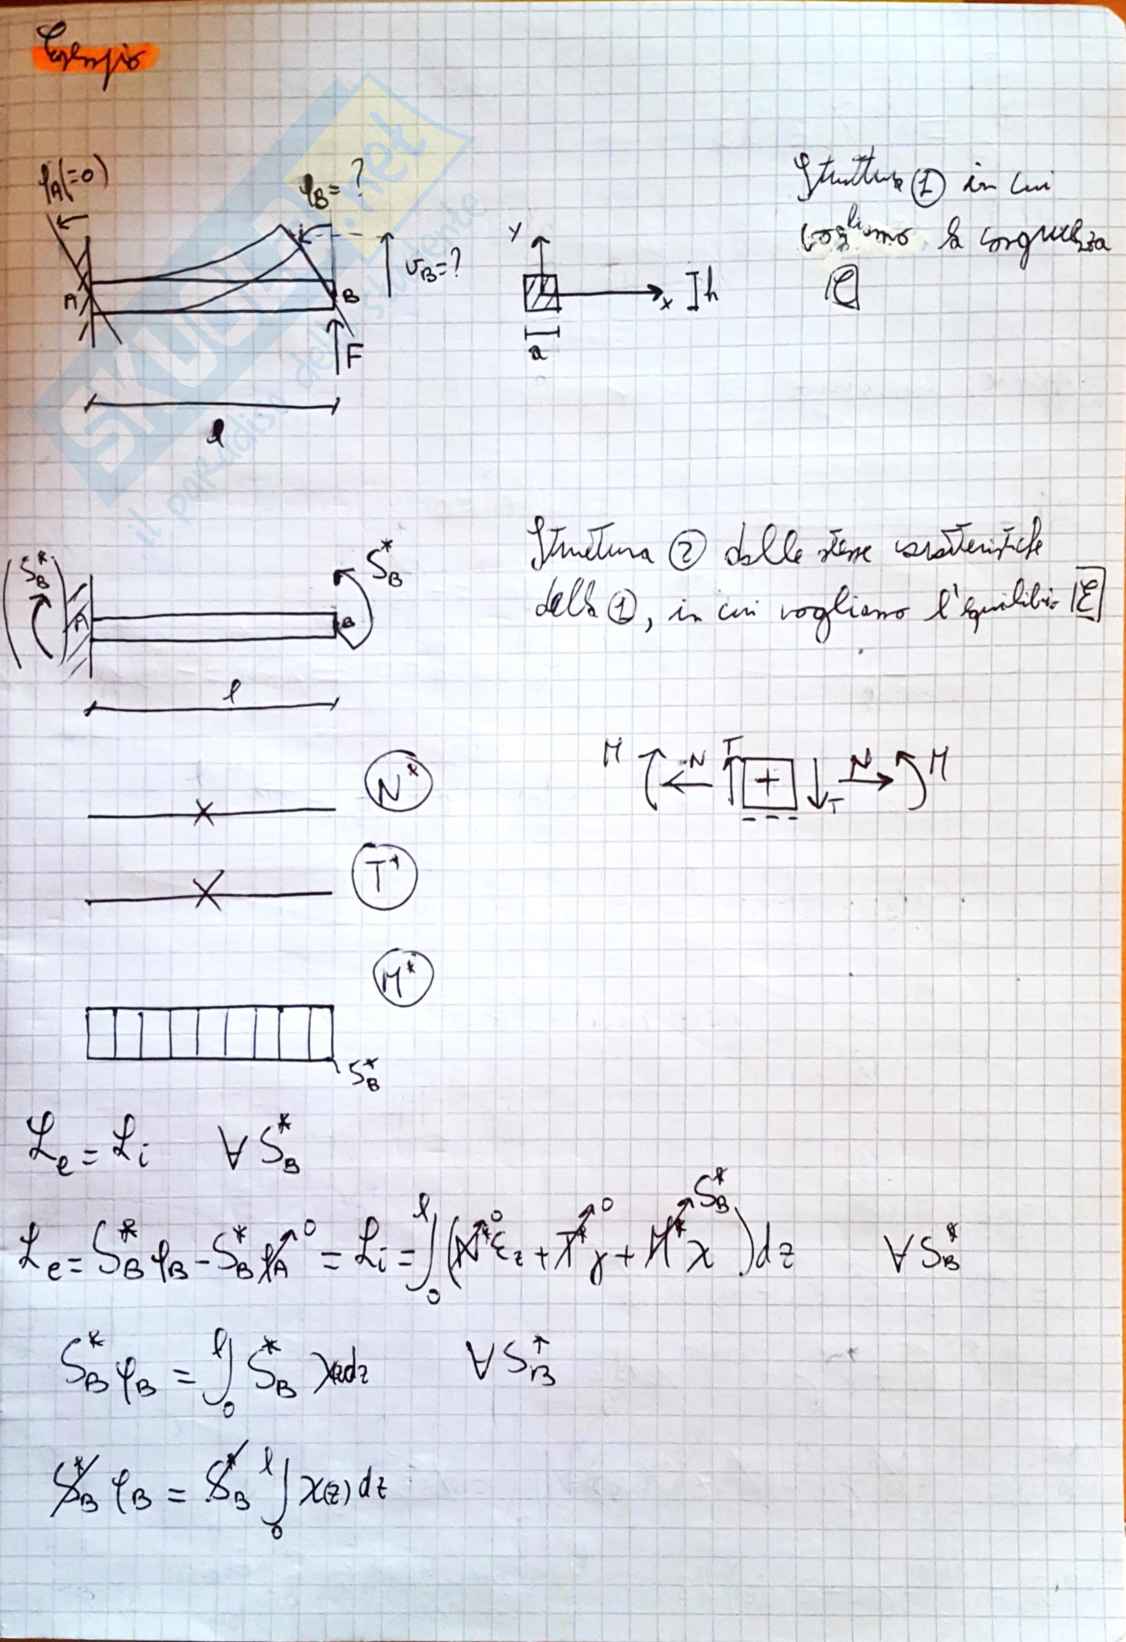 Esempio
φA(=0)
φB=?
vB=?
A
B
F
l
y
x
h
a
Struttura ① in cui
vogliamo la congruenza
C
SKUOLA.net
il paradiso dello studente
(SB*)
SB*
A
B
l
Struttura ② dalle stesse caratteristiche
della ①, in cui vogliamo l'equilibrio E
N*
M N T + T N M
T*
M*
SB*
Le = Li ∀ SB*
Le = SB* φB - SB* φA 0 = Li = ∫0l (N* 0 εz + T* 0 γ + M* SB* χ) dz ∀ SB*
SB* φB = ∫0l SB* χ dz ∀ SB*
SB* φB = SB* ∫0l χ(z) dz